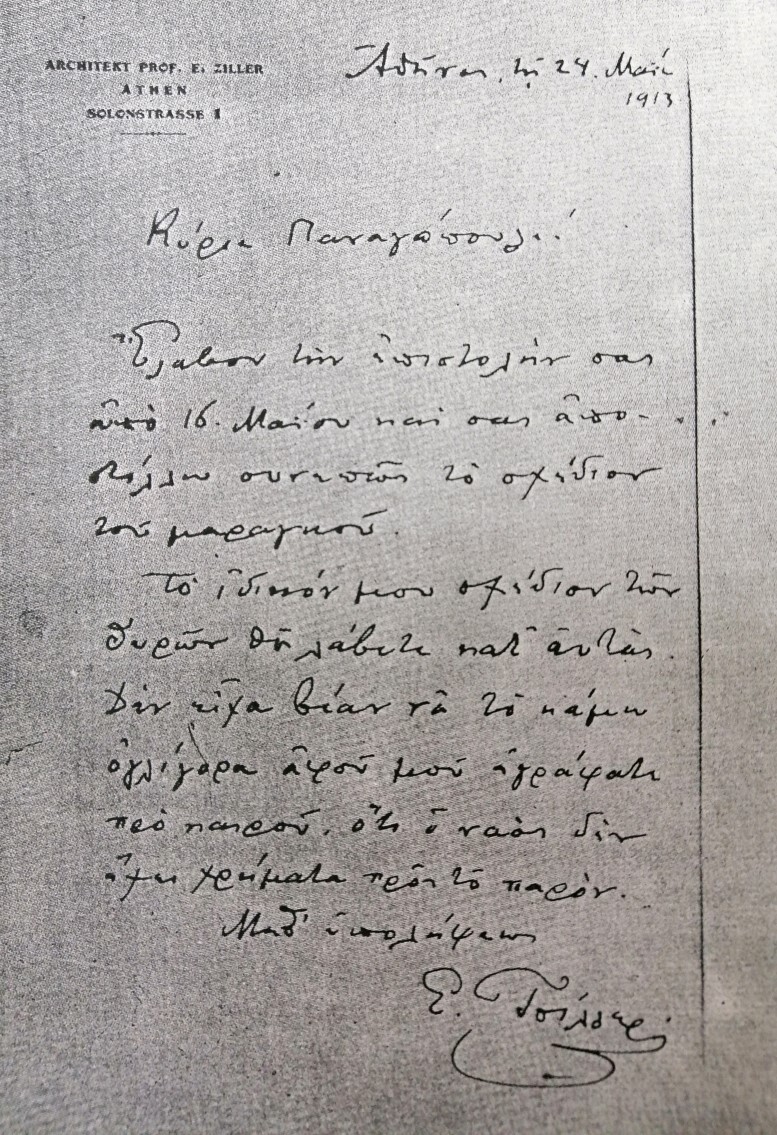 ARCHITEKT PROF. E. ZILLER
ATHEN
SOLONSTRASSE 1
Ἀθῆναι, τῇ 24. Μαΐ
1913
Κύριε Παναγόπουλε!
Ἔλαβον τὴν ἐπιστολήν σας
ἀπὸ 16. Μαΐου καὶ σας ἀπο-
στέλλω συνεπῶς τὸ σχέδιον
τοῦ μαραγκοῦ.
Τὸ ἰδικόν μου σχέδιον τῶν
θυρῶν θὰ λάβετε κατ' αὐτὰς.
Δὲν εἶχα βίαν νὰ τὸ κάμω
ὀγλίγορα ἀφοῦ μοῦ ἐγράφατε
πρὸ καιροῦ, ὅτι ὁ ναὸς δὲν
ἔχει χρήματα πρὸς τὸ παρὸν.
Μεθ' ὑπολήψεως
Ε. Τσίλλερ